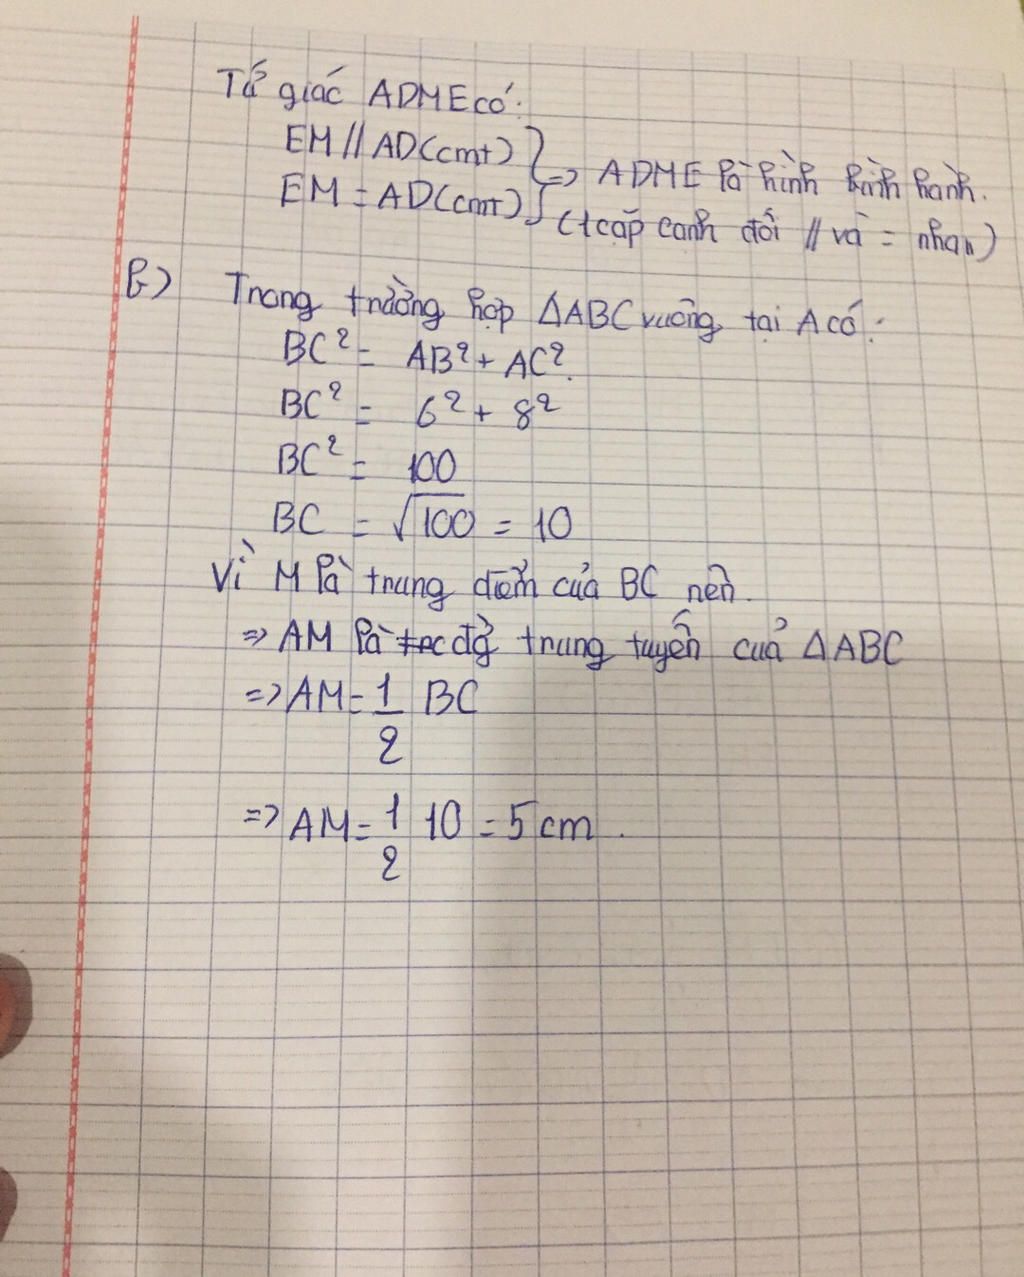 Tứ giác ADME có:
EM // AD (cmt)
EM = AD (cmt)
=> ADME là hình bình hành.
(1 cặp cạnh đối // và = nhau)
b) Trong trường hợp ΔABC vuông tại A có:
BC² = AB² + AC².
BC² = 6² + 8²
BC² = 100
BC = √100 = 10
Vì M là trung điểm của BC nên.
=> AM là đg trung tuyến của ΔABC
=> AM = 1/2 BC
=> AM = 1/2 10 = 5 cm.